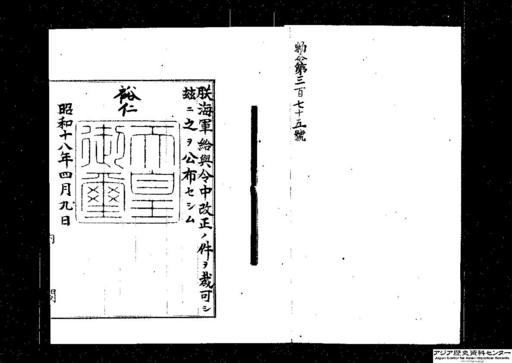 勅令第三百七十五號
朕海軍給與令中改正ノ件ヲ裁可シ
茲ニ之ヲ公布セシム
裕仁
天皇御璽
昭和十八年四月九日
内閣
アジア歴史資料センター
Japan Center for Asian Historical Records